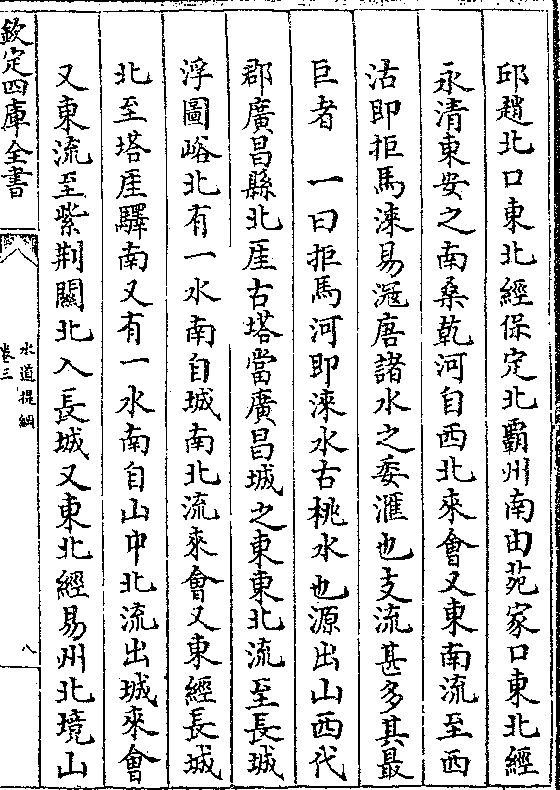 邱趙北口東北經保定北霸州南由苑家口東北經
永清東安之南桑乾河自西北來會又東南流至西
沽即拒馬淶易滱唐諸水之委滙也支流甚多其最
巨者　一曰拒馬河即淶水古桃水也源出山西代
郡廣昌縣北厓古塔當廣昌城之東東北流至長城
浮圖峪北有一水南自城南北流來會又東經長城
北至塔厓驛南又有一水南自山中北流出城來會
又東流至紫荆關北入長城又東北經易州北境山
欽定四庫全書
水道提綱
卷三
八